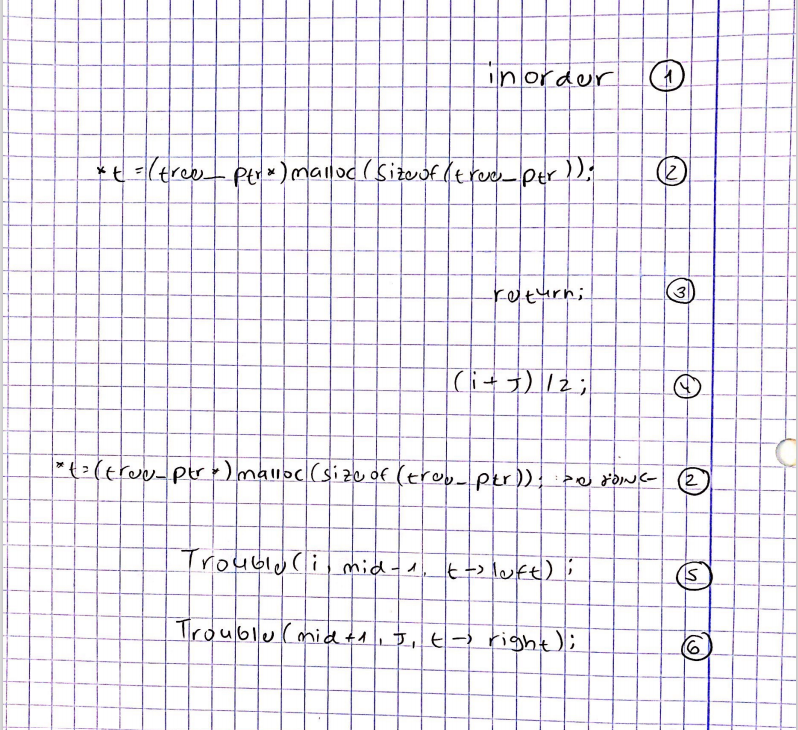 inorder ①
*t =(tree_ptr*)malloc(sizeof(tree_ptr));  ②
return; ③
(i+J)/2; ④
*t=(tree_ptr*)malloc(sizeof(tree_ptr)); ②
Trouble(i, mid-1, t->left); ⑤
Trouble(mid+1, J, t-> right); ⑥